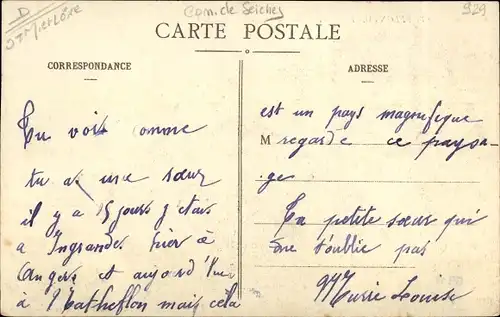 D
Mre et Loire
Com. de Seiches
929
CARTE POSTALE
CORRESPONDANCE
ADRESSE
Tu vois comme
tu a une sœur
il y a 15 jours j'etais
a Ingrandes hier à
Angers et aujord'hui
à Matheflon mais cela
est un pays magnefique
M regarde ce paysa-
ge
Ta petite sœur qui
ne t'oublie pas
Marie Louise